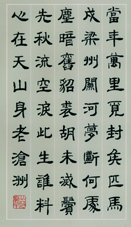 當年萬里覓封侯匹馬
戍梁州關河夢斷何處
塵暗舊貂裘胡未滅鬢
先秋淚空流此生誰料
心在天山身老滄洲